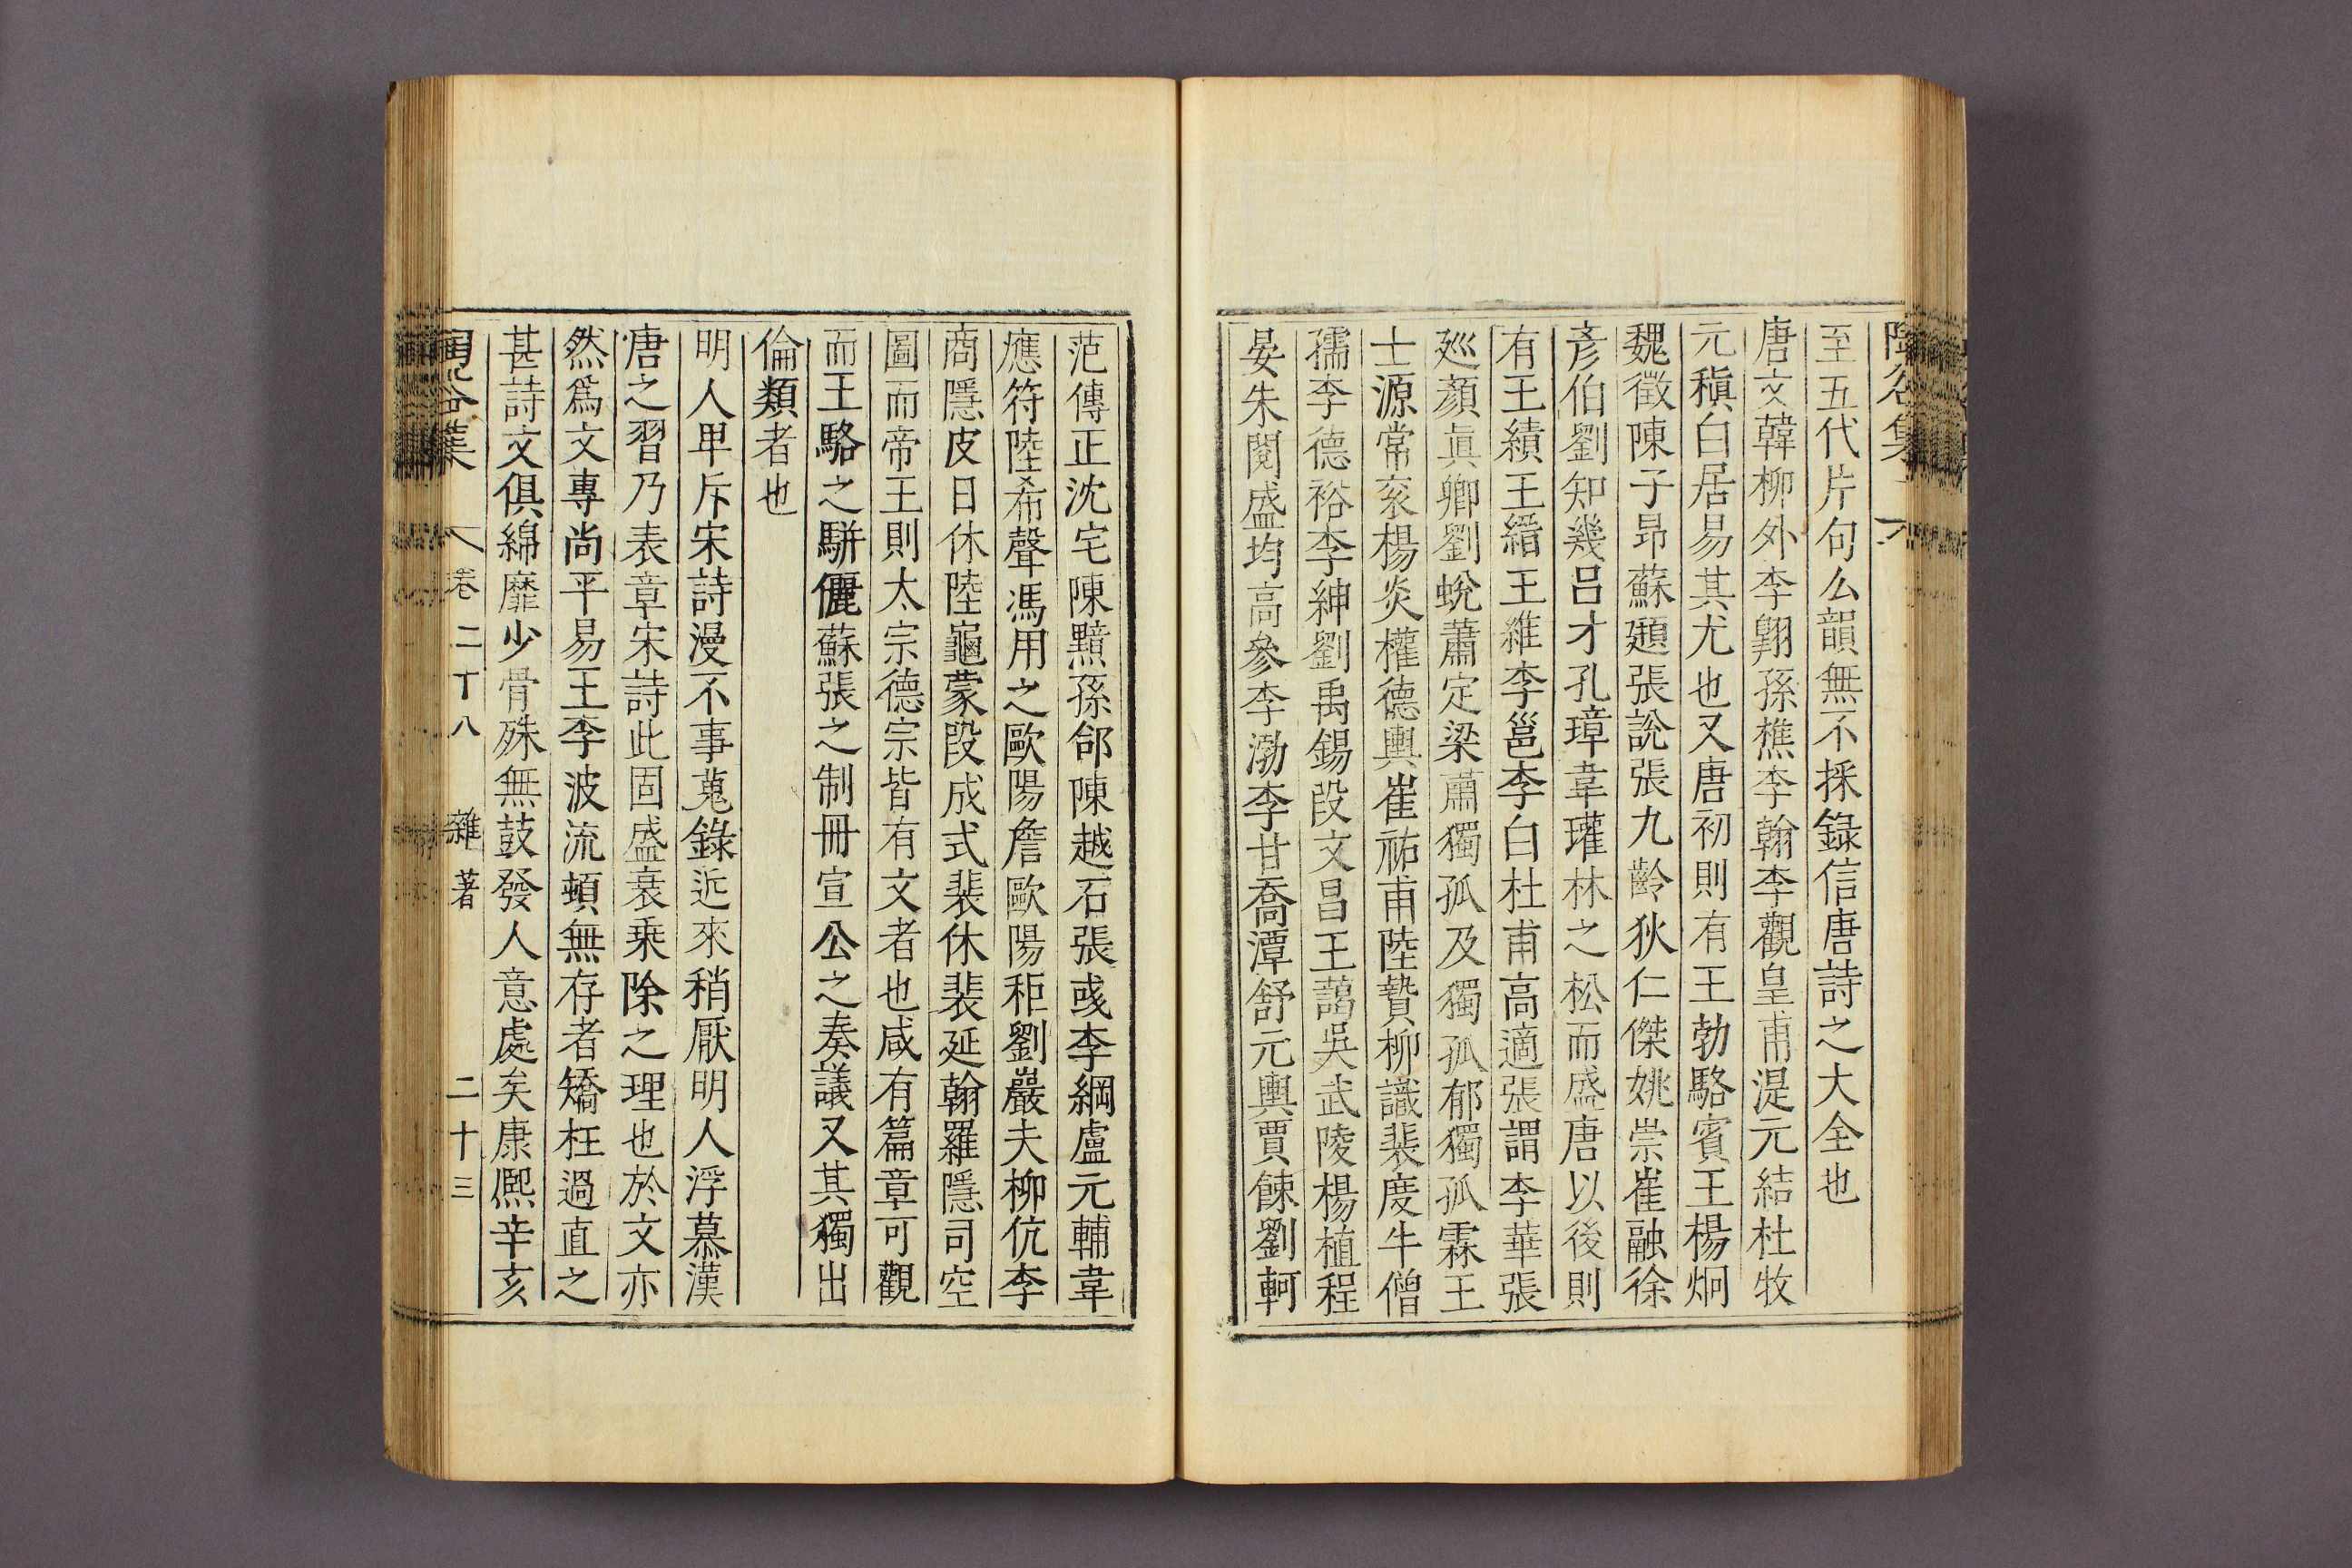 至五代片句么韻無不採錄信唐詩之大全也
唐文韓柳外李翺孫樵李翰李觀皇甫湜元結杜牧
元稹白居易其尤也又唐初則有王勃駱賓王楊炯
魏徵陳子昻蘇頲張說張九齡狄仁傑姚崇崔融徐
彥伯劉知幾呂才孔璋韋瓘林之松而盛唐以後則
有王績王縉王維李邕李白杜甫高適張謂李華張
廵顏眞卿劉蛻蕭定梁蕭獨孤及獨孤郁獨孤霖王
士源常衮楊炎權德輿崔祐甫陸贄柳識裴度牛僧
孺李德裕李紳劉禹錫段文昌王藹吳武陵楊植程
晏朱閱盛均高參李渤李甘喬潭舒元輿賈餗劉軻
范傳正沈宅陳黯孫郃陳越石張彧李綱盧元輔韋
應符陸希聲馮用之歐陽詹歐陽秬劉巖夫柳伉李
商隱皮日休陸龜蒙段成式裴休裴延翰羅隱司空
圖而帝王則太宗德宗皆有文者也咸有篇章可觀
而王駱之騈儷蘇張之制冊宣公之奏議又其獨出
倫類者也
明人卑斥宋詩漫不事蒐錄近來稍厭明人浮慕漢
唐之習乃表章宋詩此固盛衰乘除之理也於文亦
然爲文專尚平易王李波流頓無存者矯枉過直之
甚詩文俱綿靡少骨殊無鼓發人意處矣康熙辛亥
集 卷二十八 雜著 二十三